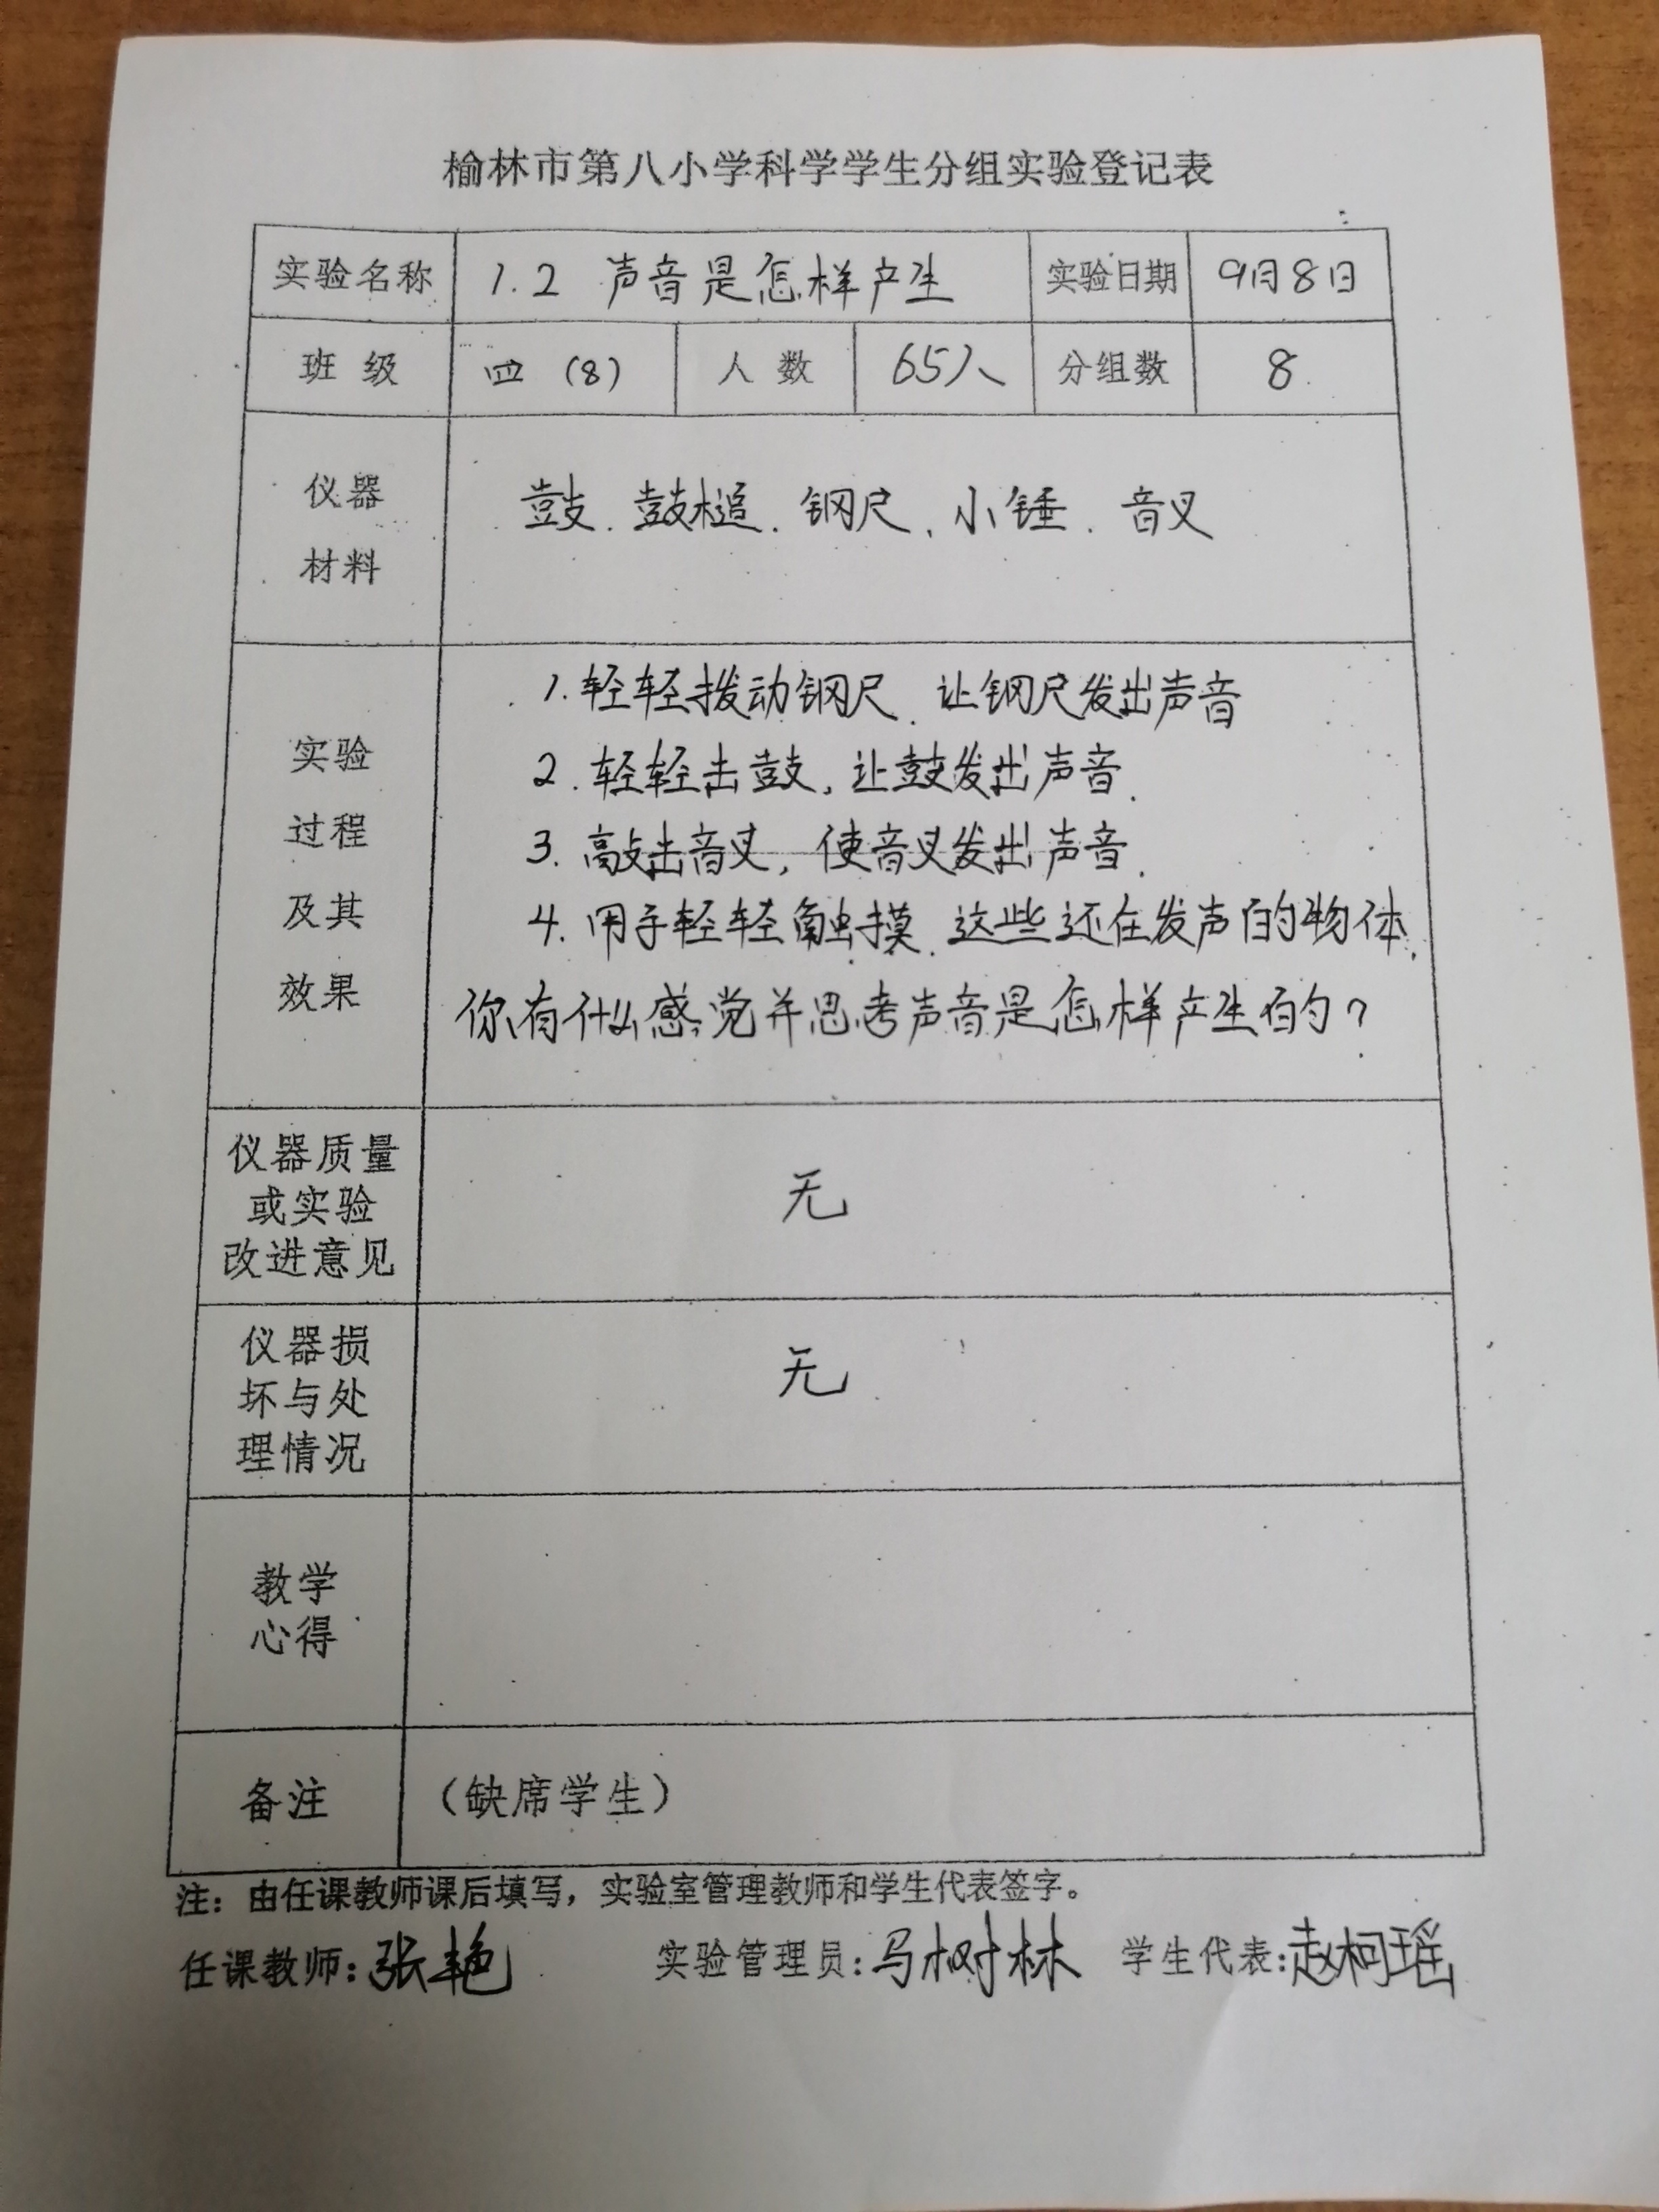 榆林市第八小学科学学生分组实验登记表
实验名称 1.2 声音是怎样产生 实验日期 9月8日
班级 四(8) 人数 65人 分组数 8
仪器
材料
鼓.鼓槌.钢尺、小锤.音叉
实验
过程
及其
效果
1.轻轻拨动钢尺.让钢尺发出声音
2.轻轻击鼓,让鼓发出声音.
3.敲击音叉,使音叉发出声音.
4.用手轻轻触摸.这些还在发声的物体,
你有什么感觉并思考声音是怎样产生的?
仪器质量
或实验
改进意见
无
仪器损
坏与处
理情况
无
教学
心得
备注 (缺席学生)
注:由任课教师课后填写,实验室管理教师和学生代表签字。
任课教师:张艳 实验管理员:马树林 学生代表:赵柯瑶